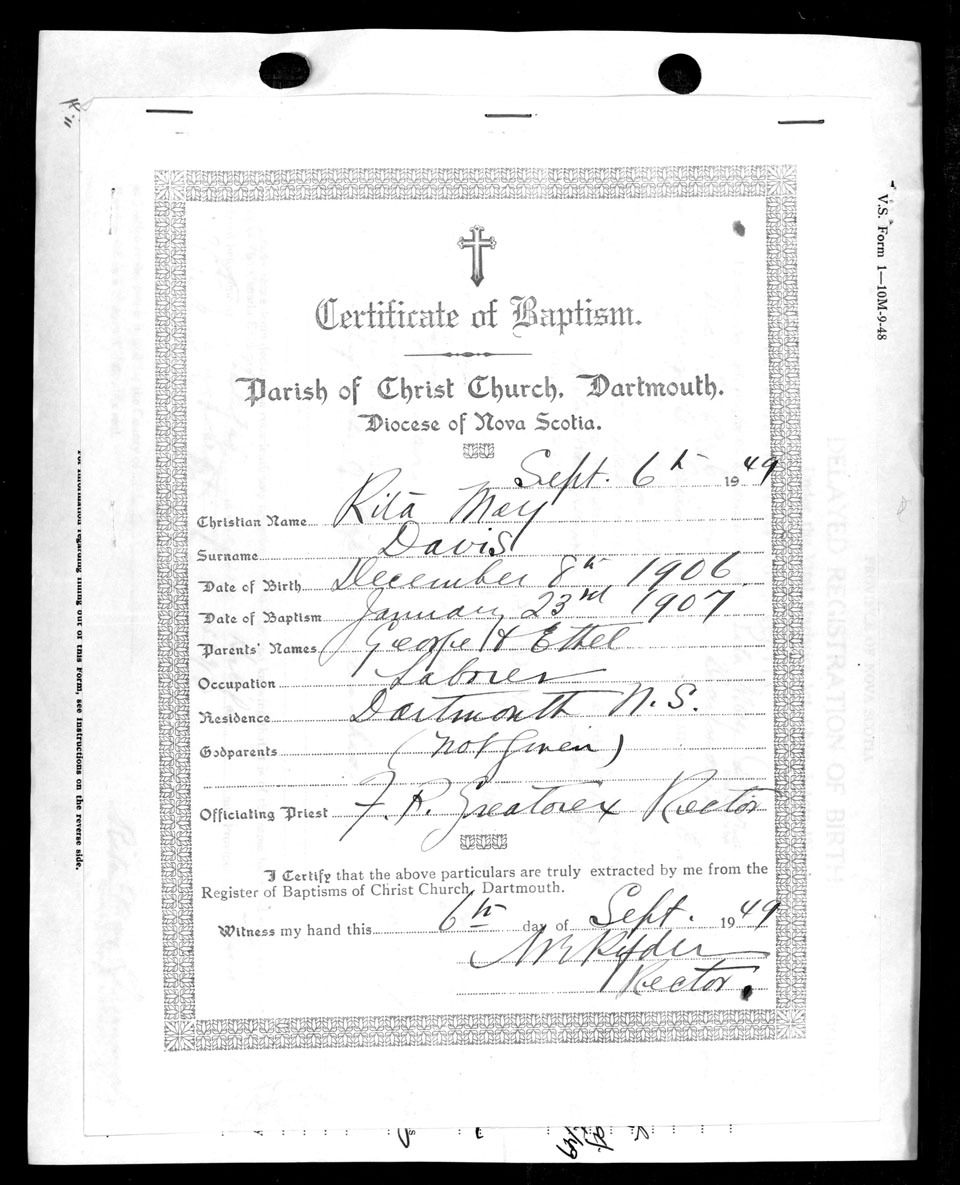 V.S. Form 1—10M-9-48
Certificate of Baptism.
Parish of Christ Church, Dartmouth.
Diocese of Nova Scotia.
Sept. 6th 1949
Christian Name Rita May
Surname Davis
Date of Birth December 8th 1906.
Date of Baptism January 23rd 1907
Parents' Names George & Ethel
Occupation Laborer
Residence Dartmouth N.S.
Godparents (not given)
Officiating Priest F. R. Greatorex Rector
I Certify that the above particulars are truly extracted by me from the
Register of Baptisms of Christ Church, Dartmouth.
Witness my hand this 6th day of Sept. 1949
Ryder
Rector.
For information regarding filling out of this Form, see instructions on the reverse side.
DELAYED REGISTRATION OF BIRTH